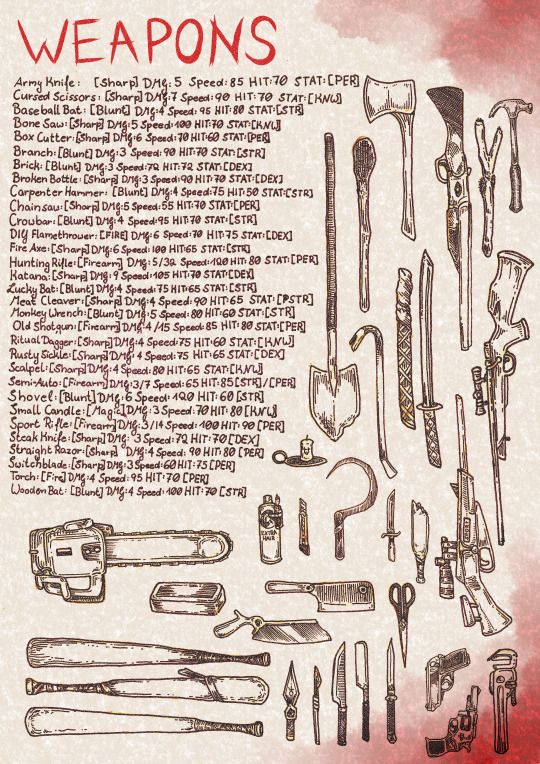 WEAPONS
Army Knife: [Sharp] DMg: 5 Speed: 85 HIT:70 STAT: [PER]
Cursed Scissors: [Sharp] DMg:7 Speed: 90 HIT: 70 STAT: [KNW]
Baseball Bat: [Blunt] DMg: 4 Speed: 95 HIT: 80 STAT:[STR]
Bone Saw: [Sharp] DMg:5 Speed: 100 HIT:70 STAT:[KNW]
Box Cutter: [Sharp] DMg:6 Speed: 70 HIT:60 STAT:[PER]
Branch: [Blunt] DMg: 3 Speed: 90 HIT:70 STAT:[STR]
Brick: [Blunt] DMg: 3 Speed:72 HIT:72 STAT:[DEX]
Broken Bottle: [Sharp] DMg:3 Speed: 90 HIT:70 STAT:[DEX]
Carpenter Hammer: [Blunt] DMg:4 Speed:75 HIT:50 STAT:[STR]
Chainsaw: [Sharp] DMg:5 Speed: 55 HIT:70 STAT:[PER]
Crowbar: [Blunt] DMg:4 Speed: 95 HIT:70 STAT:[STR]
DIY Flamethrower: [FIRE] DMg:6 Speed: 70 HIT:75 STAT:[DEX]
Fire Axe: [Sharp] DMg:6 Speed: 100 HIT:65 STAT:[STR]
Hunting Rifle: [Firearm] DMg: 5/32 Speed: 120 HIT: 80 STAT: [PER]
Katana: [Sharp] DMg: 9 Speed: 105 HIT:70 STAT:[DEX]
Lucky Bat: [Blunt] DMg:4 Speed: 75 HIT:65 STAT:[STR]
Meat Cleaver: [Sharp] DMg:4 Speed: 90 HIT:65 STAT: [PSTR]
Monkey Wrench: [Blunt] DMg:5 Speed: 80 HIT:60 STAT:[STR]
Old Shotgun: [Firearm] DMg:4/15 Speed: 85 HIT:80 STAT:[PER]
Ritual Dagger: [Sharp] DMg:4 Speed:75 HIT:60 STAT:[KNW]
Rusty Sickle: [Sharp] DMg: 4 Speed: 75 HIT: 65 STAT:[DEX]
Scalpel: [Sharp] DMg: 4 Speed: 80 HIT:65 STAT:[KNW]
Semi-Auto: [Firearm] DMg:3/7 Speed: 65 HIT:85[STR]/[PER]
Shovel: [Blunt] DMg: 6 Speed: 120 HIT:60 [STR]
Small Candle: [Magic] DMg: 3 Speed:70 HIT: 80 [KNW]
Sport Rifle: [Firearm] DMg:3/14 Speed: 100 HIT: 90 [PER]
Steak Knife: [Sharp] DMg: 3 Speed: 72 HIT:70 [DEX]
Straight Razor: [Sharp] DMg:4 Speed: 90 HIT: 80 [PER]
Switchblade: [Sharp] DMg:3 Speed:60 HIT:75 [PER]
Torch: [Fire] DMg:4 Speed: 95 HIT:70 [PER]
Wooden Bat: [Blunt] DMg:4 Speed: 100 HIT:70 [STR]
EXTRA
HAIR